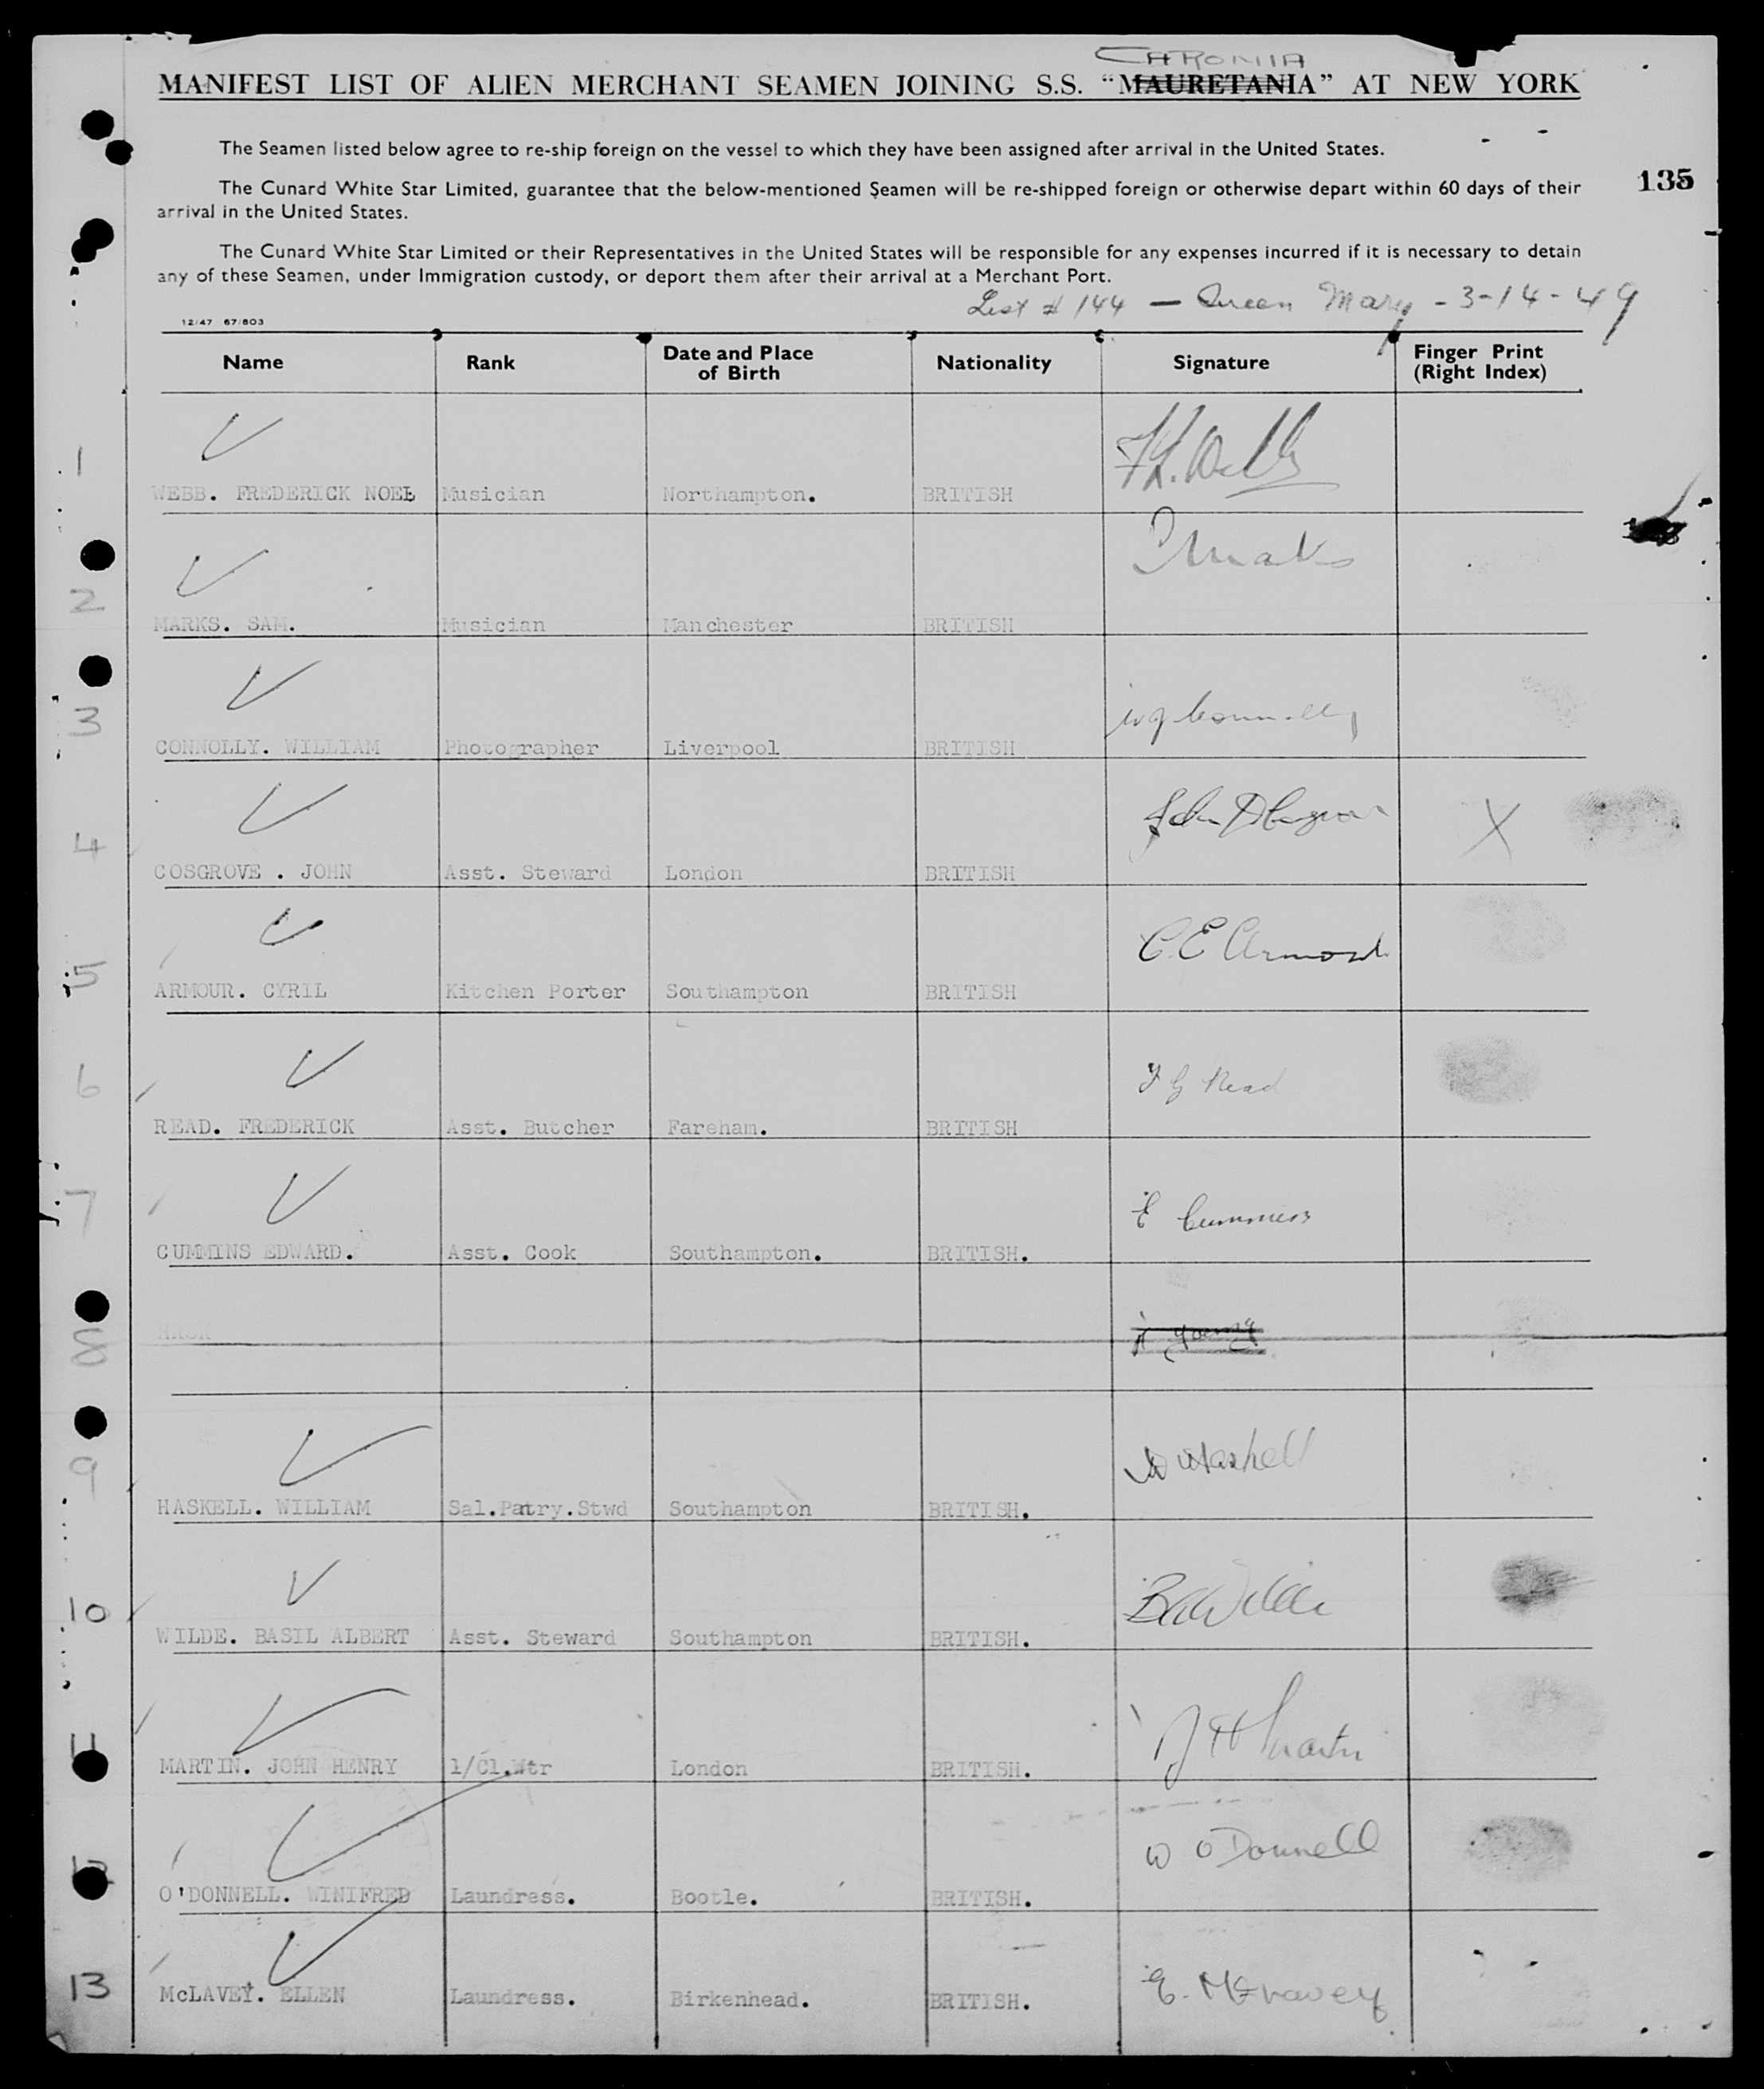 CARONIA
MANIFEST LIST OF ALIEN MERCHANT SEAMEN JOINING S.S. “MAURETANIA” AT NEW YORK
The Seamen listed below agree to re-ship foreign on the vessel to which they have been assigned after arrival in the United States.
135
The Cunard White Star Limited, guarantee that the below-mentioned Seamen will be re-shipped foreign or otherwise depart within 60 days of their
arrival in the United States.
The Cunard White Star Limited or their Representatives in the United States will be responsible for any expenses incurred if it is necessary to detain
any of these Seamen, under Immigration custody, or deport them after their arrival at a Merchant Port.
List # 144 — Queen Mary - 3-14-49
12/47 67/803
Name Rank Date and Place of Birth Nationality Signature Finger Print (Right Index)
1 WEBB. FREDERICK NOEL Musician Northampton. BRITISH
2 MARKS. SAM. Musician Manchester BRITISH Marks
3 CONNOLLY. WILLIAM Photographer Liverpool BRITISH W J Connolly
4 COSGROVE . JOHN Asst. Steward London BRITISH John X
5 ARMOUR. CYRIL Kitchen Porter Southampton BRITISH C. E
6 READ. FREDERICK Asst. Butcher Fareham. BRITISH F G Read
7 CUMMINS EDWARD. Asst. Cook Southampton. BRITISH. E Cummins
8 HASK Young
9 HASKELL. WILLIAM Sal.Patry.Stwd Southampton BRITISH. W Haskell
10 WILDE. BASIL ALBERT Asst. Steward Southampton BRITISH. B A Wilde
11 MARTIN. JOHN HENRY 1/Cl.Wtr London BRITISH. J H Martin
12 O'DONNELL. WINIFRED Laundress. Bootle. BRITISH. W O'Donnell
13 McLAVEY. ELLEN Laundress. Birkenhead. BRITISH. E.